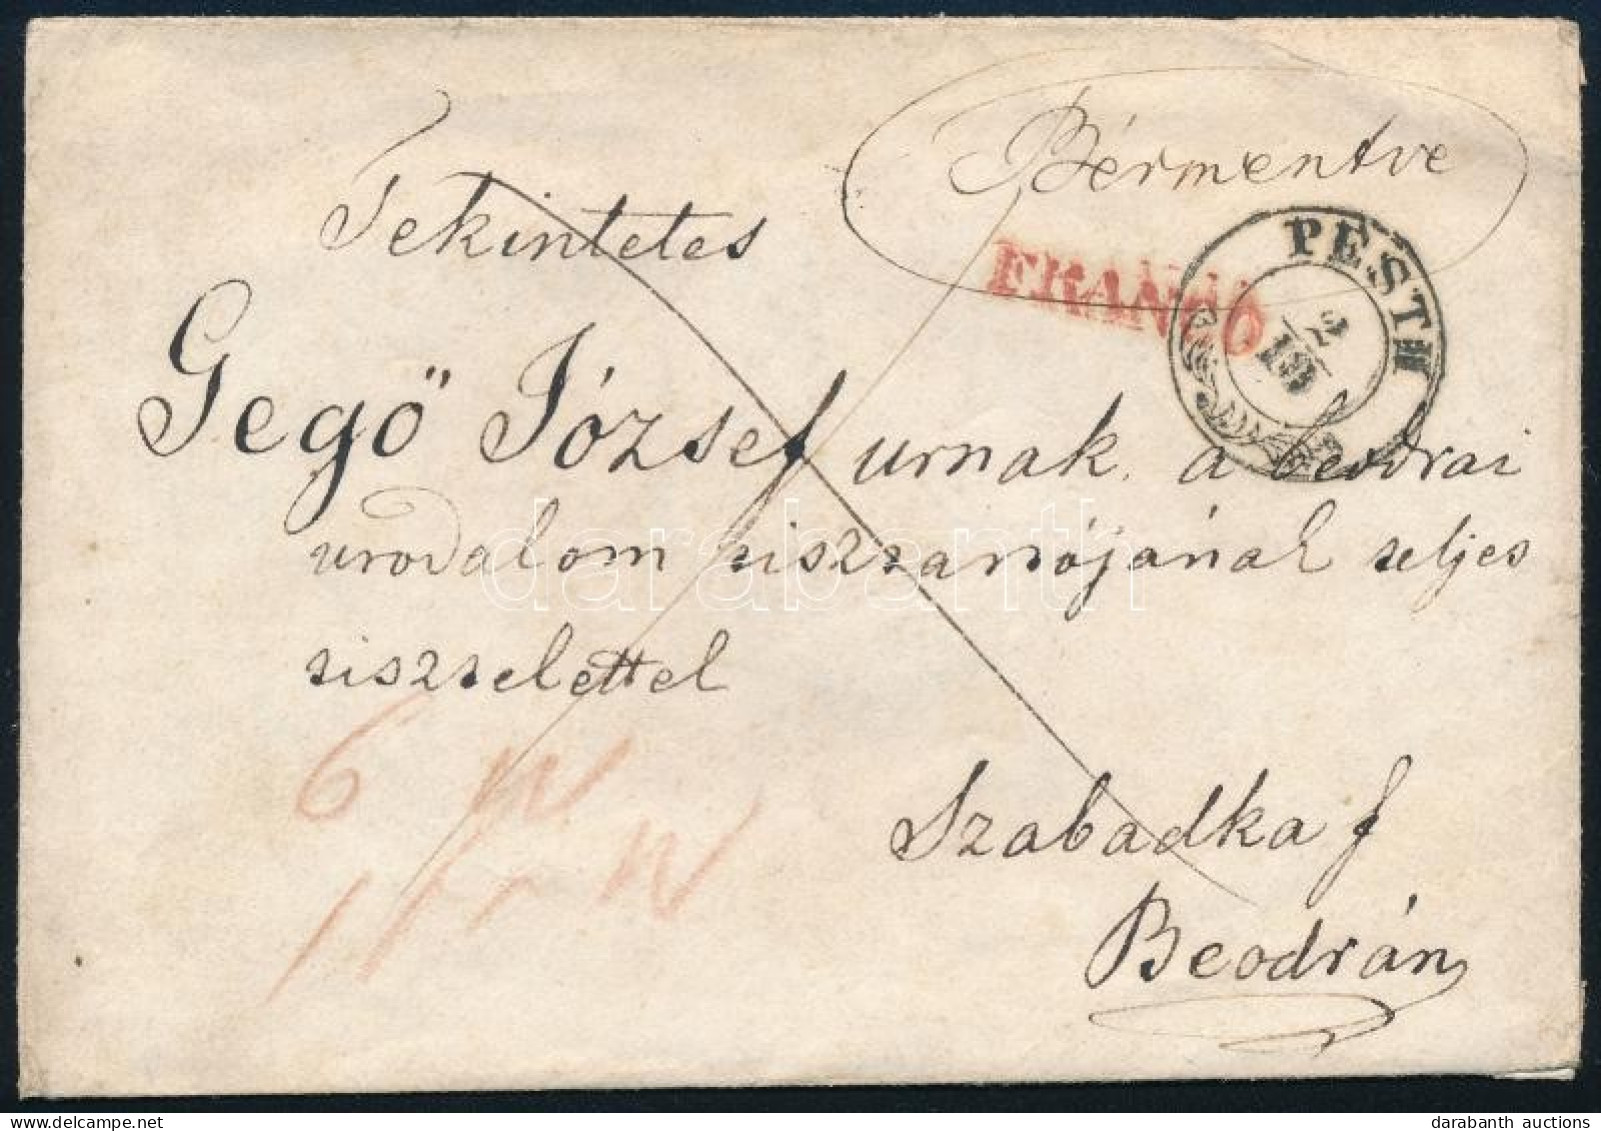 Bérmentve
Tekintetes
FRANCO
PESTH
Gegő József urnak a beodrai
urodalom tisztartójának teljes
tisztelettel
6
Szabadka f
Beodrán
darabanth
darabanth auctions